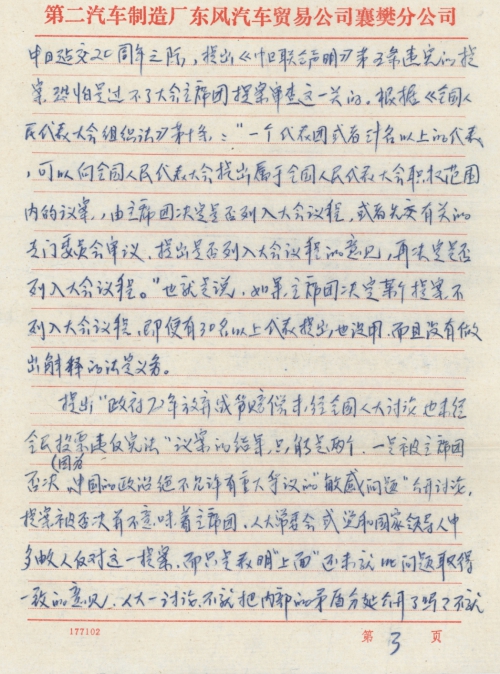 第二汽车制造厂东风汽车贸易公司襄樊分公司
中日建交20周年之际，提出《中日联合声明》第5条违宪的提
案恐怕是过不了大会主席团提案审查这一关的。根据《全国人
民代表大会组织法》第十条：“一个代表团或者卅名以上的代表
，可以向全国人民代表大会提出属于全国人民代表大会职权范围
内的议案，由主席团决定是否列入大会议程，或者先交有关的
专门委员会审议、提出是否列入大会议程的意见，再决定是否
列入大会议程。”也就是说，如果主席团决定某个提案不
列入大会议程，即便有30名以上代表提出也没用，而且没有做
出解释的法定义务。
提出“政府72年放弃战争赔偿未经全国人大讨论也未经
全民投票违反宪法”议案的结果，只能是两个，一是被主席团
否决，(因为)中国的政治绝不允许有重大争议的“敏感问题”公开讨论，
提案被否决并不意味着主席团、人大常委会或党和国家领导人中
多数人反对这一提案，而只是表明“上面”还未就此问题取得
一致的意见，人大一讨论，不就把内部的矛盾分歧公开了吗？不就
177102
第 3 页